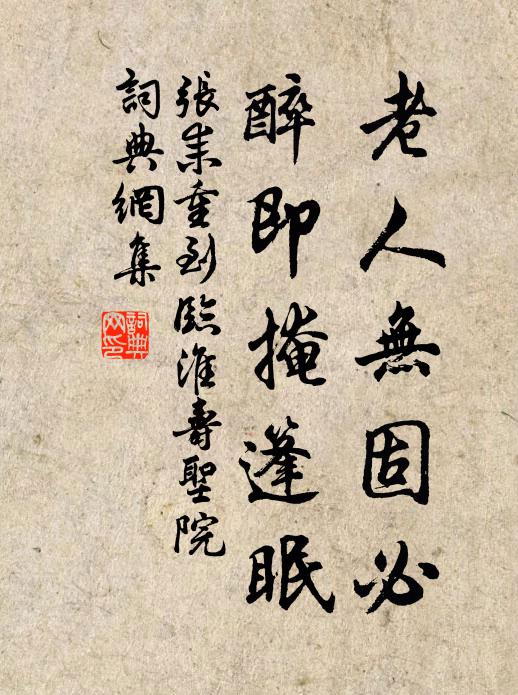 老人無固必
醉即掩篷眠
張耒重到臨淮壽聖院
詞典網集
詞典网印